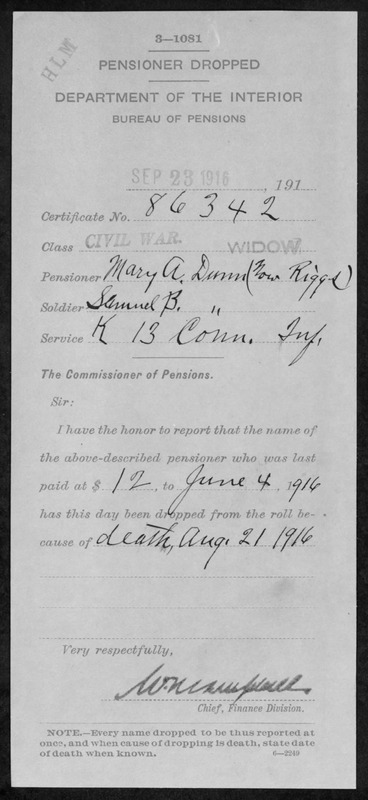 HLM
3—1081
PENSIONER DROPPED
DEPARTMENT OF THE INTERIOR
BUREAU OF PENSIONS
SEP 23 1916 , 191
Certificate No. 86342
Class CIVIL WAR. WIDOW
Pensioner Mary A. Dunn (now Riggs)
Soldier Samuel B. "
Service K 13 Conn. Inf.
The Commissioner of Pensions.
Sir:
I have the honor to report that the name of
the above-described pensioner who was last
paid at $ 12, to June 4, 1916
has this day been dropped from the roll be-
cause of death, Aug. 21 1916
Very respectfully,
Chief, Finance Division.
NOTE.—Every name dropped to be thus reported at
once, and when cause of dropping is death, state date
of death when known. 6—2249